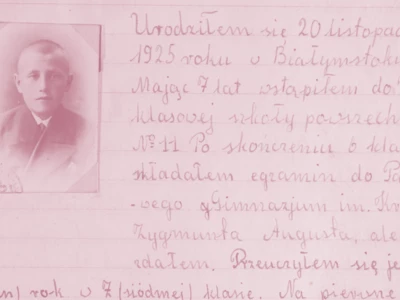 Urodziłem się 20 listopad
1925 roku w Białymstoku
Mając 7 lat wstąpiłem do
klasowej szkoły powszech
№ 11 Po skończeniu 6 kla
składałem egzamin do Pa
-wego gGimnazjum im. Kr
Zygmunta Augusta, ale
zdałem. Przeuczyłem się je
rok w 7 (siódmej) klasie. Na pierwsze